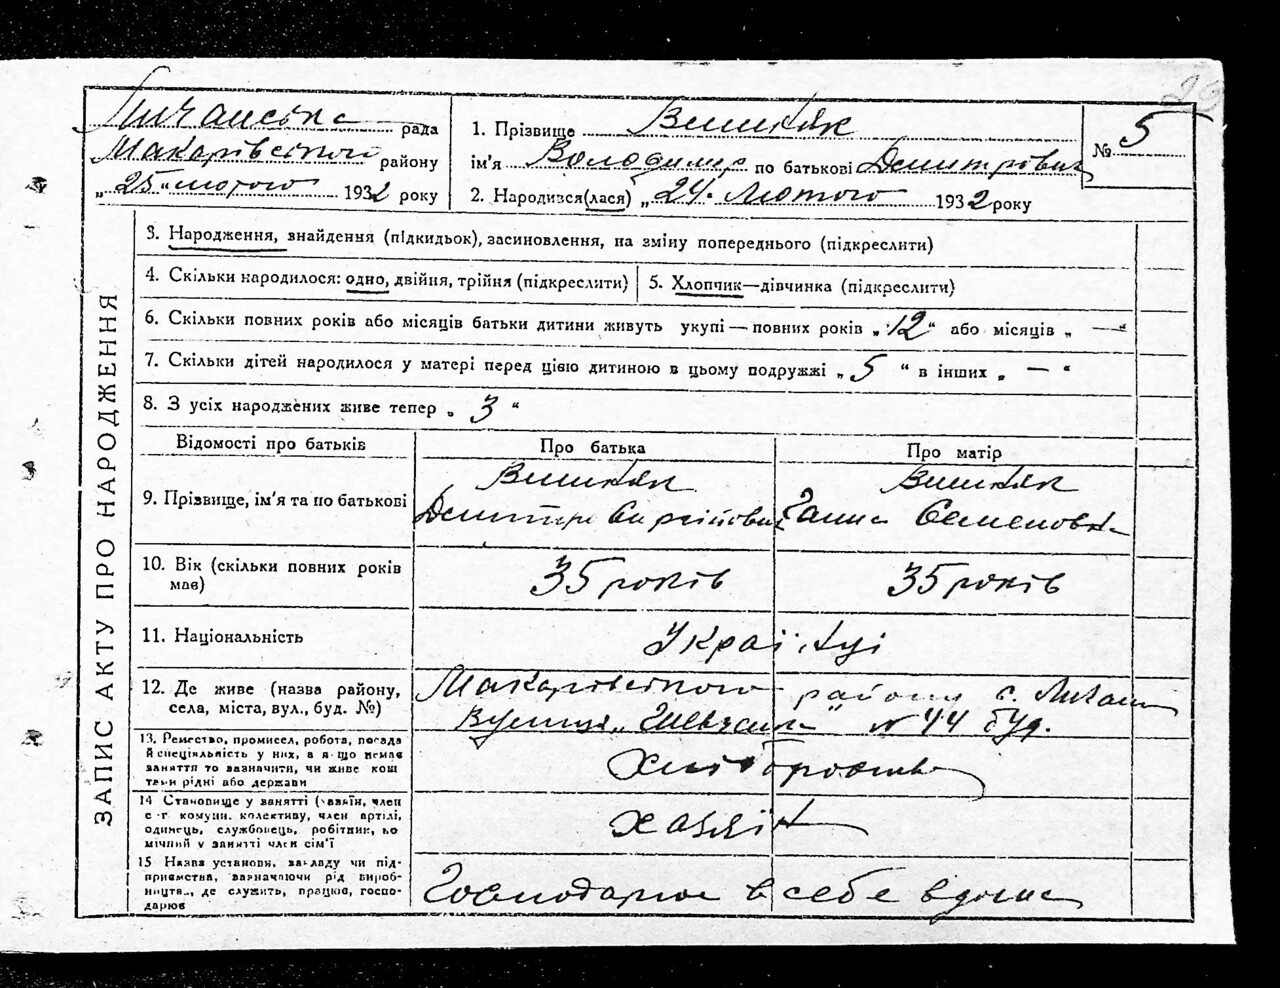 29
Личанська рада
Макарівського району
„25“ лютого 1932 року
1. Прізвище Вишняк
ім'я Володимир по батькові Дмитрович
2. Народився(лася) „24. Лютого 1932 року
№ 5
ЗАПИС АКТУ ПРО НАРОДЖЕННЯ
3. Народження, знайдення (підкидьок), засиновлення, на зміну попереднього (підкреслити)
4. Скільки народилося: одно, двійня, трійня (підкреслити)
5. Хлопчик—дівчинка (підкреслити)
6. Скільки повних років або місяців батьки дитини живуть укупі—повних років „12“ або місяців „—“
7. Скільки дітей народилося у матері перед цією дитиною в цьому подружжі „5“ в інших „—“
8. З усіх народжених живе тепер „3“
Відомості про батьків
Про батька
Про матір
9. Прізвище, ім'я та по батькові
Вишняк
Дмитро Сергійович
Вишняк
Ганна Семеновна
10. Вік (скільки повних років
має)
35 років
35 років
11. Національність
Українці
12. Де живе (назва району,
села, міста, вул., буд. №)
Макарівського району с. Личани
Вулиця „Шевченка“ № 44 буд.
13. Ремество, промисел, робота, посада
й спеціальність у них, а якщо немає
заняття то вазначити, чи живе кош
тами рідні або держави
Хліборобство
14 Становище у занятті (хазяїн, член
с.-г. комуни, колективу, член артілі,
одинець, службовець, робітник, по
мічний у занятті член сім'ї
хазяїн
15 Назва установи, закладу чи під-
приємства, вазначаючи рід вироб-
ництв., де служить, працює, госпо-
дарює
Господарює в себе вдома